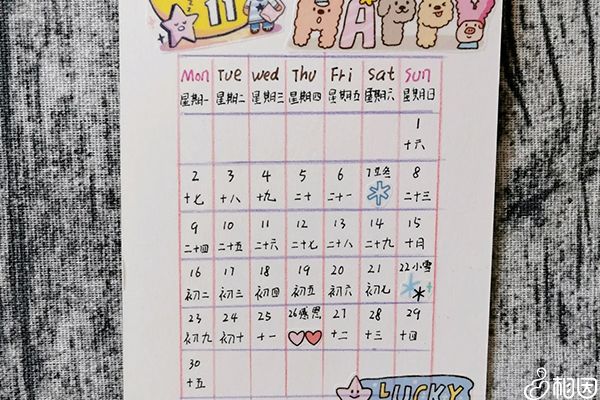 11 HAPPY
Mon Tue wed Thu Fri Sat Sun
星期一 星期二 星期三 星期四 星期五 星期六 星期日
1
十六
2 3 4 5 6 7立冬 8
十七 十八 十九 二十 二十一 二十三
9 10 11 12 13 14 15
二十四 二十五 二十六 二十七 二十八 二十九 十日
16 17 18 19 20 21 22小雪
初二 初三 初四 初五 初六 初七
23 24 25 26感恩 27 28 29
初九 初十 十一 十二 十三 十四
30
十五
LUCKY